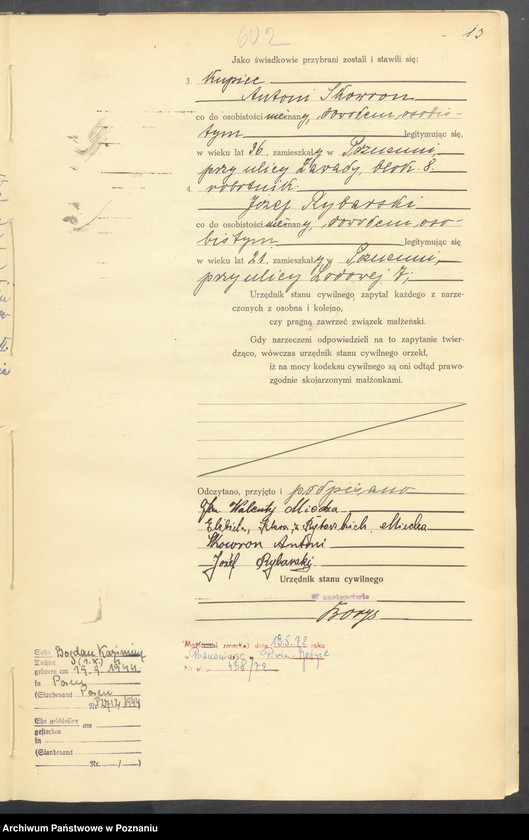 602
13
Jako świadkowie przybrani zostali i stawili się:
3. Kupiec
Antoni Skowron
co do osobistości nieznany, dowodem osobis-
tym legitymując się,
w wieku lat 36, zamieszkały w Poznaniu,
przy ulicy Zawady, blok 8.
4. robotnik.
Józef Rybarski
co do osobistości nieznany, dowodem oso-
bistym legitymując się
w wieku lat 21, zamieszkały w Poznaniu,
przy ulicy Lodowej 7;
Urzędnik stanu cywilnego zapytał każdego z narze-
czonych z osobna i kolejno,
czy pragną zawrzeć związek małżeński.
Gdy narzeczeni odpowiedzieli na to zapytanie twier-
dząco, wówczas urzędnik stanu cywilnego orzekł,
iż na mocy kodeksu cywilnego są oni odtąd prawo-
zgodnie skojarzonymi małżonkami.
Odczytano, przyjęto i podpisano
Walenty Miecka
Elżbieta, z Miecka
Skowron Antoni
Józef Rybarski
Urzędnik stanu cywilnego
W zastępstwie
Borys
zmarł(a) dnia 18.5.72 roku
Nr 438/72
Sohn Bogdan Kazimierz
Tochter
geboren am 19.9.1944
in Posen
(Standesamt Posen
Nr. /1944
Ehe geschlossen am
gestorben
in
(Standesamt
Nr. / )
Archiwum Państwowe w Poznaniu